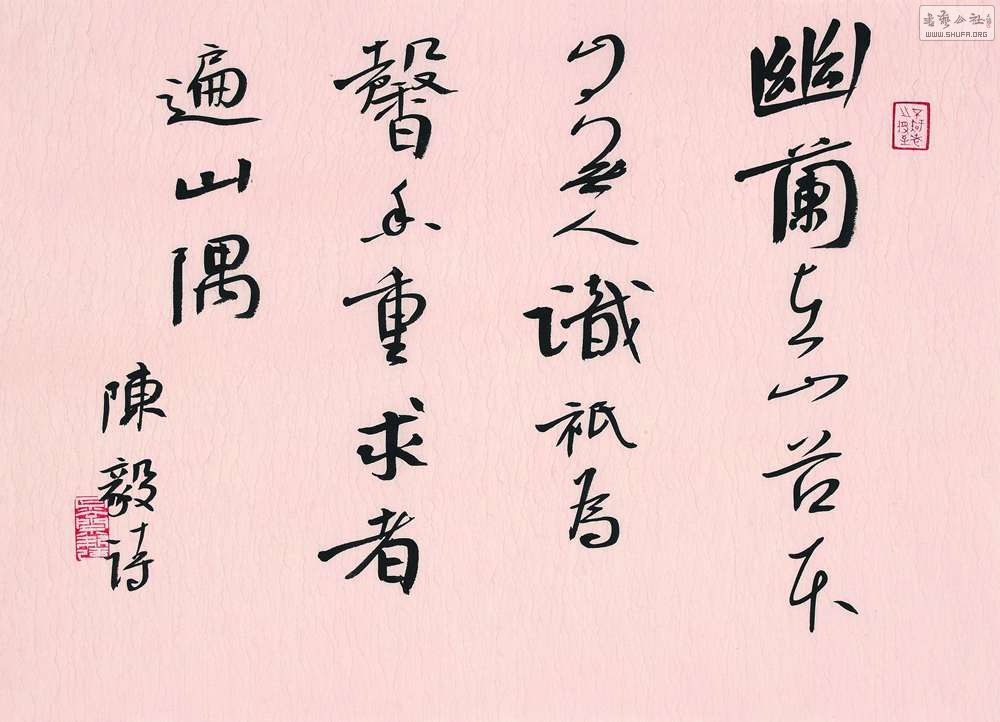 幽蘭在山谷本
自無人識祇為
馨香重求者
遍山隅
陳毅詩
書藝公社
WWW.SHUFA.ORG